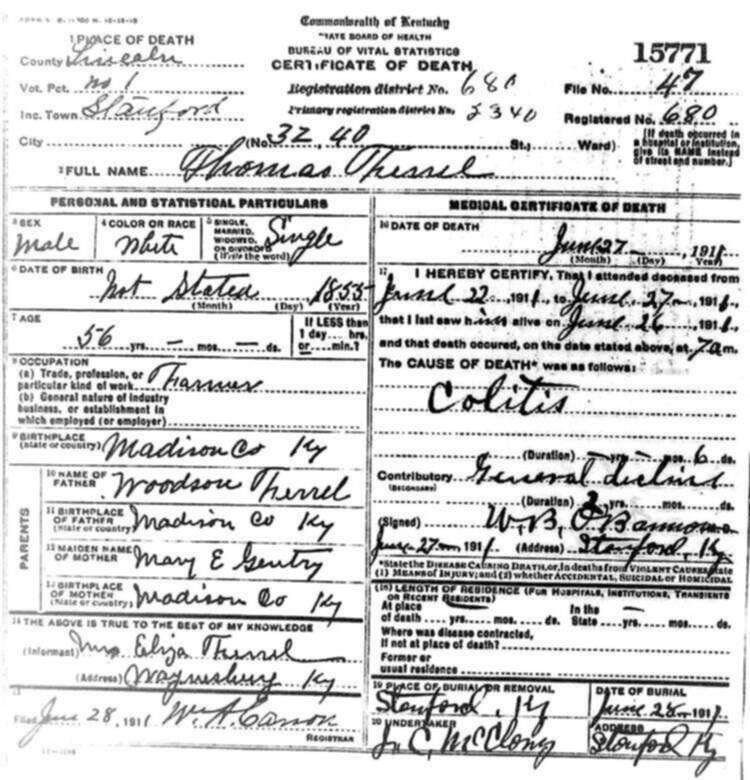 Commonwealth of Kentucky
STATE BOARD OF HEALTH
BUREAU OF VITAL STATISTICS
CERTIFICATE OF DEATH
15771
1 PLACE OF DEATH
County Lincoln
Vot. Pct. no 1
Inc. Town Stanford
City
Registration district No. 680
Primary registration district No. 2340
File No. 47
Registered No. 680
(No. 32, 40 St.; Ward)
[If death occurred in a hospital or institution, give its NAME instead of street and number.]
2 FULL NAME Thomas Therrel
PERSONAL AND STATISTICAL PARTICULARS
3 SEX
Male
4 COLOR OR RACE
White
5 SINGLE, MARRIED, WIDOWED, OR DIVORCED
(Write the word)
Single
6 DATE OF BIRTH
Not Stated, 1855
(Month) (Day) (Year)
7 AGE
56 yrs. — mos. — ds.
If LESS than
1 day... hrs.
or.... min.?
8 OCCUPATION
(a) Trade, profession, or
particular kind of work Farmer
(b) General nature of industry
business, or establishment in
which employed (or employer)
9 BIRTHPLACE
(State or country) Madison Co Ky
PARENTS
10 NAME OF
FATHER Woodson Therrel
11 BIRTHPLACE
OF FATHER
(State or country) Madison Co Ky
12 MAIDEN NAME
OF MOTHER Mary E Gentry
13 BIRTHPLACE
OF MOTHER
(State or country) Madison Co Ky
14 THE ABOVE IS TRUE TO THE BEST OF MY KNOWLEDGE
(Informant) Mrs Eliza Therrel
(Address) Waynesburg Ky
15
Filed June 28, 1911 Wm A. Carson
REGISTRAR
MEDICAL CERTIFICATE OF DEATH
16 DATE OF DEATH
June 27 —, 1911
(Month) (Day) (Year)
17 I HEREBY CERTIFY, That I attended deceased from
June 22 1911, to June 27 — 1911,
that I last saw him alive on June 26 1911,
and that death occured, on the date stated above, at 7am.
The CAUSE OF DEATH* was as follows:
Colitis
(Duration) yrs. mos. 6 ds.
Contributory General decline
(SECONDARY)
(Duration) 2 yrs. mos. ds.
(Signed) W. B. O'Bannon
June 27 — 1911 (Address) Stanford, Ky
*State the DISEASE CAUSING DEATH, or, in deaths from VIOLENT CAUSES state
(1) MEANS OF INJURY; and (2) whether ACCIDENTAL, SUICIDAL or HOMICIDAL
(18) LENGTH OF RESIDENCE (FOR HOSPITALS, INSTITUTIONS, TRANSIENTS
OR RECENT RESIDENTS)
At place
of death yrs. mos. ds.
In the
State yrs. mos. ds.
Where was disease contracted,
if not at place of death?
Former or
usual residence
19 PLACE OF BURIAL OR REMOVAL
Stanford, Ky
DATE OF BURIAL
June 28 — 1911
20 UNDERTAKER
J. C. McClary
ADDRESS
Stanford Ky